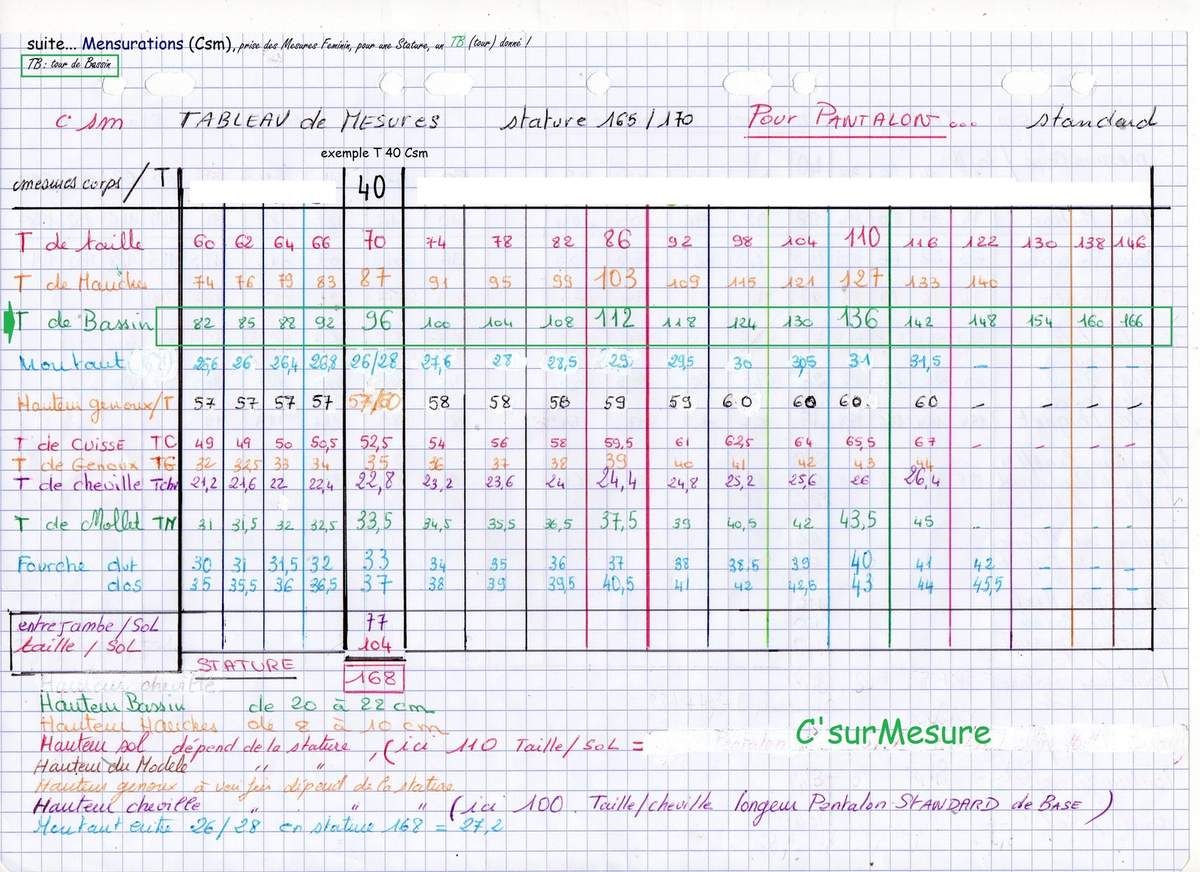 suite... Mensurations (Csm), prise des Mesures Feminin, pour une Stature, un TB (tour) donné !
TB : tour de Bassin
c sm TABLEAU de MESURES stature 165/170 Pour PANTALON... standard
exemple T 40 Csm
mesures corps / T 40
T de taille 60 62 64 66 70 74 78 82 86 92 98 104 110 116 122 130 138 146
T de Hanches 74 76 79 83 87 91 95 99 103 109 115 121 127 133 140
T de Bassin 82 85 88 92 96 100 104 108 112 118 124 130 136 142 148 154 160 166
Montant 25,6 26 26,4 26,8 26/28 27,6 28 28,5 29 29,5 30 30,5 31 31,5 - - - -
Hauteur genoux/T 57 57 57 57 57/60 58 58 58 59 59 60 60 60 60 - - - -
T de CUISSE TC 49 49 50 50,5 52,5 54 56 58 59,5 61 62,5 64 65,5 67 - - - -
T de Genoux TG 32 32,5 33 34 35 36 37 38 39 40 41 42 43 44
T de cheville Tchv 21,2 21,6 22 22,4 22,8 23,2 23,6 24 24,4 24,8 25,2 25,6 26 26,4
T de Mollet TM 31 31,5 32 32,5 33,5 34,5 35,5 36,5 37,5 39 40,5 42 43,5 45 - - - -
Fourche dvt 30 31 31,5 32 33 34 35 36 37 38 38,5 39 40 41 42 - - -
dos 35 35,5 36 36,5 37 38 39 39,5 40,5 41 42 42,5 43 44 45,5 - - -
entrejambe / SOL 77
taille / SOL 104
STATURE 168
Hauteur cheville
Hauteur Bassin de 20 à 22 cm
Hauteur Hanches de 8 à 10 cm
C'surMesure
Hauteur sol dépend de la stature, (ici 110 Taille/SOL =
Hauteur du Modèle " "
Hauteur genoux à vérifier dépend de la stature
Hauteur cheville " " " (ici 100. Taille/cheville longeur Pantalon STANDARD de BASE )
Montant entre 26/28 en stature 168 = 27,2